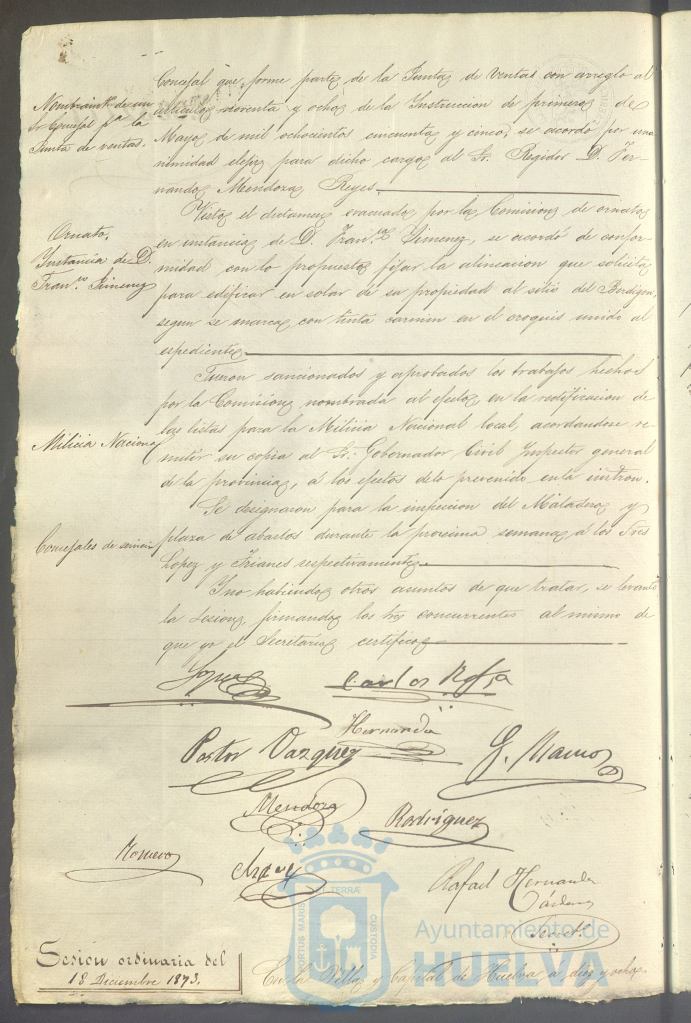 Concejal que forme parte de la Junta de Ventas con arreglo al
Nombramto de un
Sr Concejal pa la
Junta de ventas.
articulo noventa y ocho de la Instruccion de primero de
Mayo de mil ochocientos cincuenta y cinco, se acordó por una
nimidad elejir para dicho cargo al Sr. Regidor D. Fer-
nando Mendoza Reyes.
Ornato.
Instancia de D.
Franco Gimenez
Visto el dictamen evacuado por la Comision de ornato
en instancia de D. Franco Gimenez, se acordó de confor-
midad con lo propuesto fijar la alineacion que solicita
para edificar en solar de su propiedad al sitio del
segun se marca con tinta carmin en el croquis unido al
espediente
Milicia Nacional
Fueron sancionados y aprobados los trabajos hechos
por la Comision nombrada al efecto en la rectificacion de
las listas para la Milicia Nacional local, acordandose re-
mitir su copia al Sr. Gobernador Civil Inspector general
de la provincia, á los efectos de lo prevenido en la
Concejales de
Se designaron para la inspeccion del Matadero y
plaza de abastos durante la procsima semana á los Sres
Lopez y Trianes respectivamente
Y no habiendo otros asuntos de que tratar, se levantó
la Sesion, firmando los Sres concurrentes al mismo de
que yo el Secretario certifico
Carlos
Hernandez
Pastor Vazquez
G. Ramos
Mendoza
Rodriguez
Romero
Rafael Hernandez
Cárdenas
Secret.
PORTUS MARIS ET TERRÆ CUSTODIA
Ayuntamiento de
HUELVA
Sesion ordinaria del
18 Diciembre 1873.
En la Villa y Capital de Huelva a diez y ocho